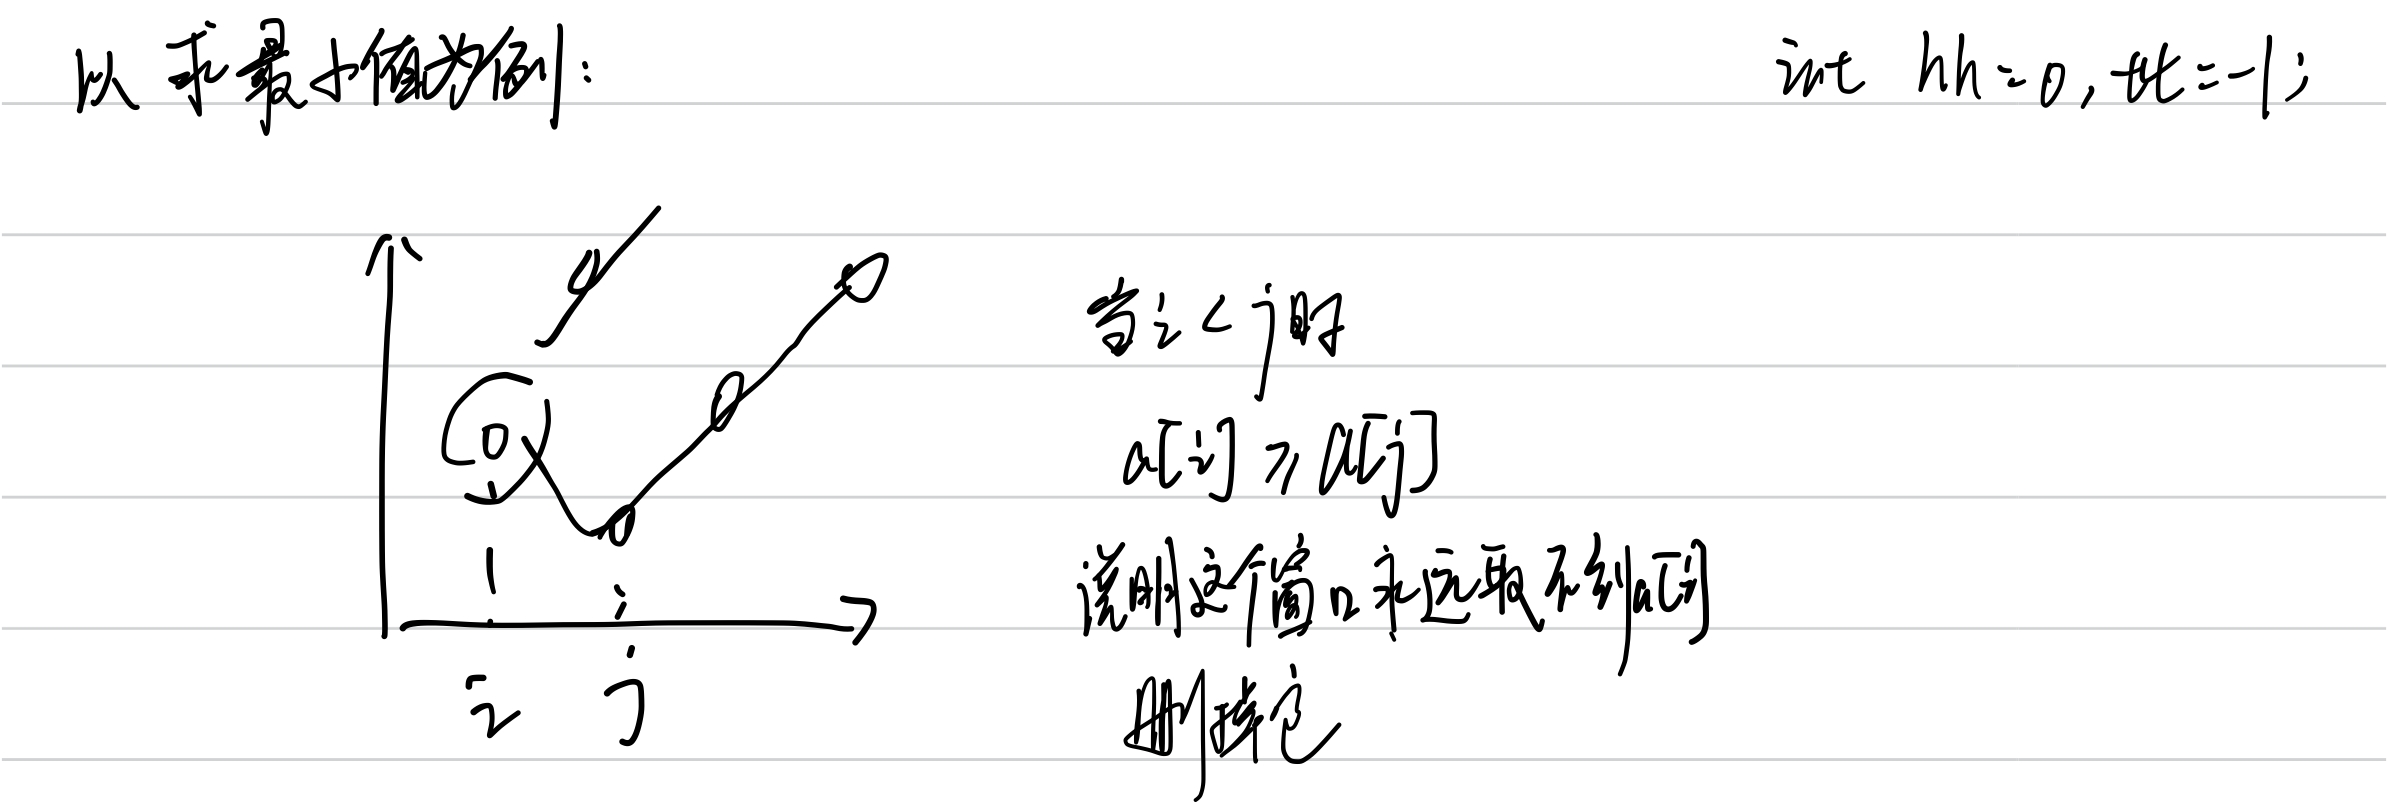 以求最小值为例:
int hh=0,tt=-1;
当i<j时
a[i]≥a[j]
说明这个窗口永远取不到a[i]
删掉它
i j